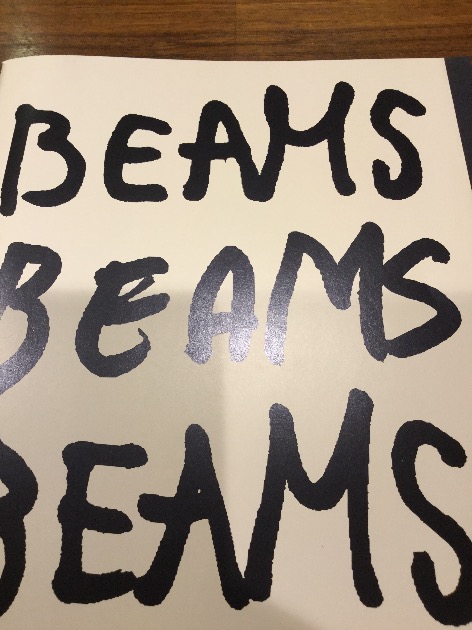 BEAMS
BEAMS
BEAMS